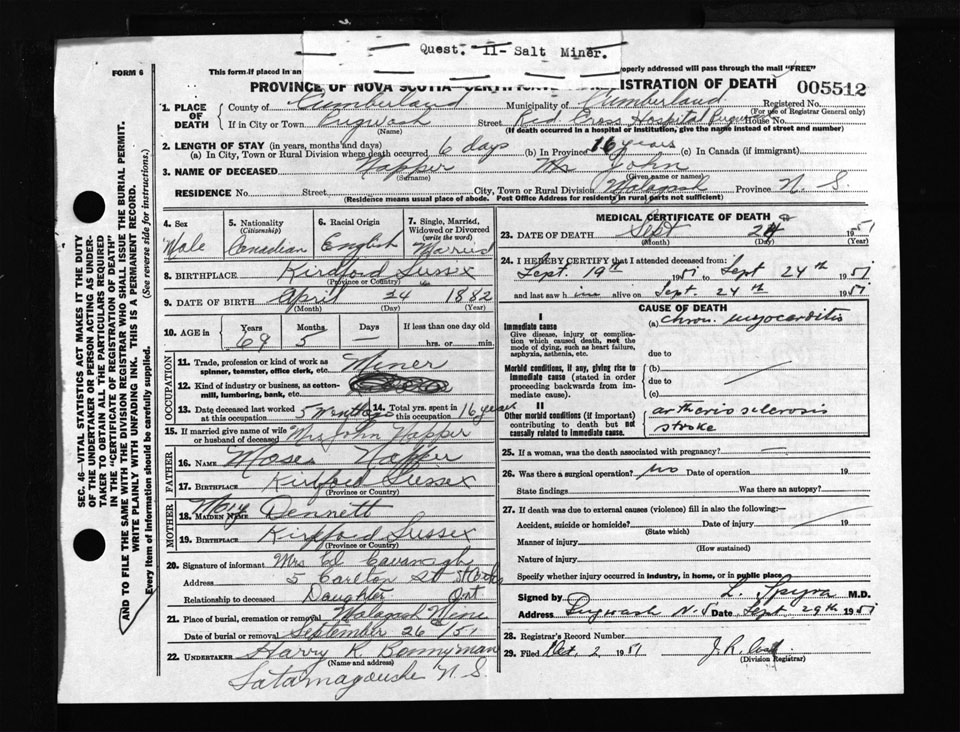 Quest. 11- Salt Miner.
FORM 6
This form if placed in an
properly addressed will pass through the mail "FREE"
PROVINCE OF NOVA SCOTIA CERTIFICATE REGISTRATION OF DEATH
005512
1. PLACE OF DEATH
County of Cumberland Municipality of Cumberland Registered No.
(For use of Registrar General only)
If in City or Town Pugwash Street Red Cross Hospital House No.
(Name) (If death occurred in a hospital or institution, give the name instead of street and number)
2. LENGTH OF STAY (in years, months and days)
(a) In City, Town or Rural Division where death occurred 6 days (b) In Province 16 years (c) In Canada (if immigrant)
3. NAME OF DECEASED Napper Mr John
(Surname) (Given name or names)
RESIDENCE No. Street City, Town or Rural Division Malagash Province N. S.
(Residence means usual place of abode. Post Office Address for residents in rural parts not sufficient)
4. Sex Male
5. Nationality (Citizenship) Canadian
6. Racial Origin English
7. Single, Married, Widowed or Divorced (write the word) Married
8. BIRTHPLACE Kirdford Sussex
(Province or Country)
9. DATE OF BIRTH April 24 1882
(Month) (Day) (Year)
10. AGE in Years 69 Months 5 Days — If less than one day old hrs. or min.
OCCUPATION
11. Trade, profession or kind of work as spinner, teamster, office clerk, etc. Miner
12. Kind of industry or business, as cotton-mill, lumbering, bank, etc.
13. Date deceased last worked at this occupation 5 months
14. Total yrs. spent in this occupation 16 years
15. If married give name of wife or husband of deceased Mrs John Napper
FATHER
16. NAME Moses Napper
17. BIRTHPLACE Kirdford Sussex
(Province or Country)
MOTHER
18. MAIDEN NAME Mary Dennett
19. BIRTHPLACE Kirdford Sussex
(Province or Country)
20. Signature of informant Mrs Ed Cavanagh
Address 5 Carlton St
Ont
Relationship to deceased Daughter
21. Place of burial, cremation or removal Malagash Mine
Date of burial or removal September 26/51
22. UNDERTAKER Harry R Bonnyman
(Name and address)
Tatamagouche N. S.
MEDICAL CERTIFICATE OF DEATH
23. DATE OF DEATH Sept 24 1951
(Month) (Day) (Year)
24. I HEREBY CERTIFY that I attended deceased from:
Sept. 19th 1951 to Sept 24th 1951
and last saw him alive on Sept. 24th 1951
CAUSE OF DEATH
I
Immediate cause
Give disease, injury or complication which caused death, not the mode of dying, such as heart failure, asphyxia, asthenia, etc.
(a) chron. myocarditis
due to
Morbid conditions, if any, giving rise to immediate cause (stated in order proceeding backwards from immediate cause).
(b)
due to
(c)
II
Other morbid conditions (if important) contributing to death but not causally related to immediate cause.
artheriosclerosis
stroke
25. If a woman, was the death associated with pregnancy? —
26. Was there a surgical operation? no Date of operation 19
State findings Was there an autopsy?
27. If death was due to external causes (violence) fill in also the following:—
Accident, suicide or homicide? Date of injury 19
(State which)
Manner of injury
(How sustained)
Nature of injury
Specify whether injury occurred in industry, in home, or in public place
Signed by L. Spyra M.D.
Address Pugwash N.S Date Sept 29th 1951
28. Registrar's Record Number
29. Filed Oct. 2 1951
(Division Registrar)
SEC. 46—VITAL STATISTICS ACT MAKES IT THE DUTY
OF THE UNDERTAKER OR PERSON ACTING AS UNDER-
TAKER TO OBTAIN ALL THE PARTICULARS REQUIRED
IN THE "CERTIFICATE OF REGISTRATION OF DEATH"
AND TO FILE THE SAME WITH THE DIVISION REGISTRAR WHO SHALL ISSUE THE BURIAL PERMIT.
WRITE PLAINLY WITH UNFADING INK. THIS IS A PERMANENT RECORD.
Every item of information should be carefully supplied. (See reverse side for instructions.)